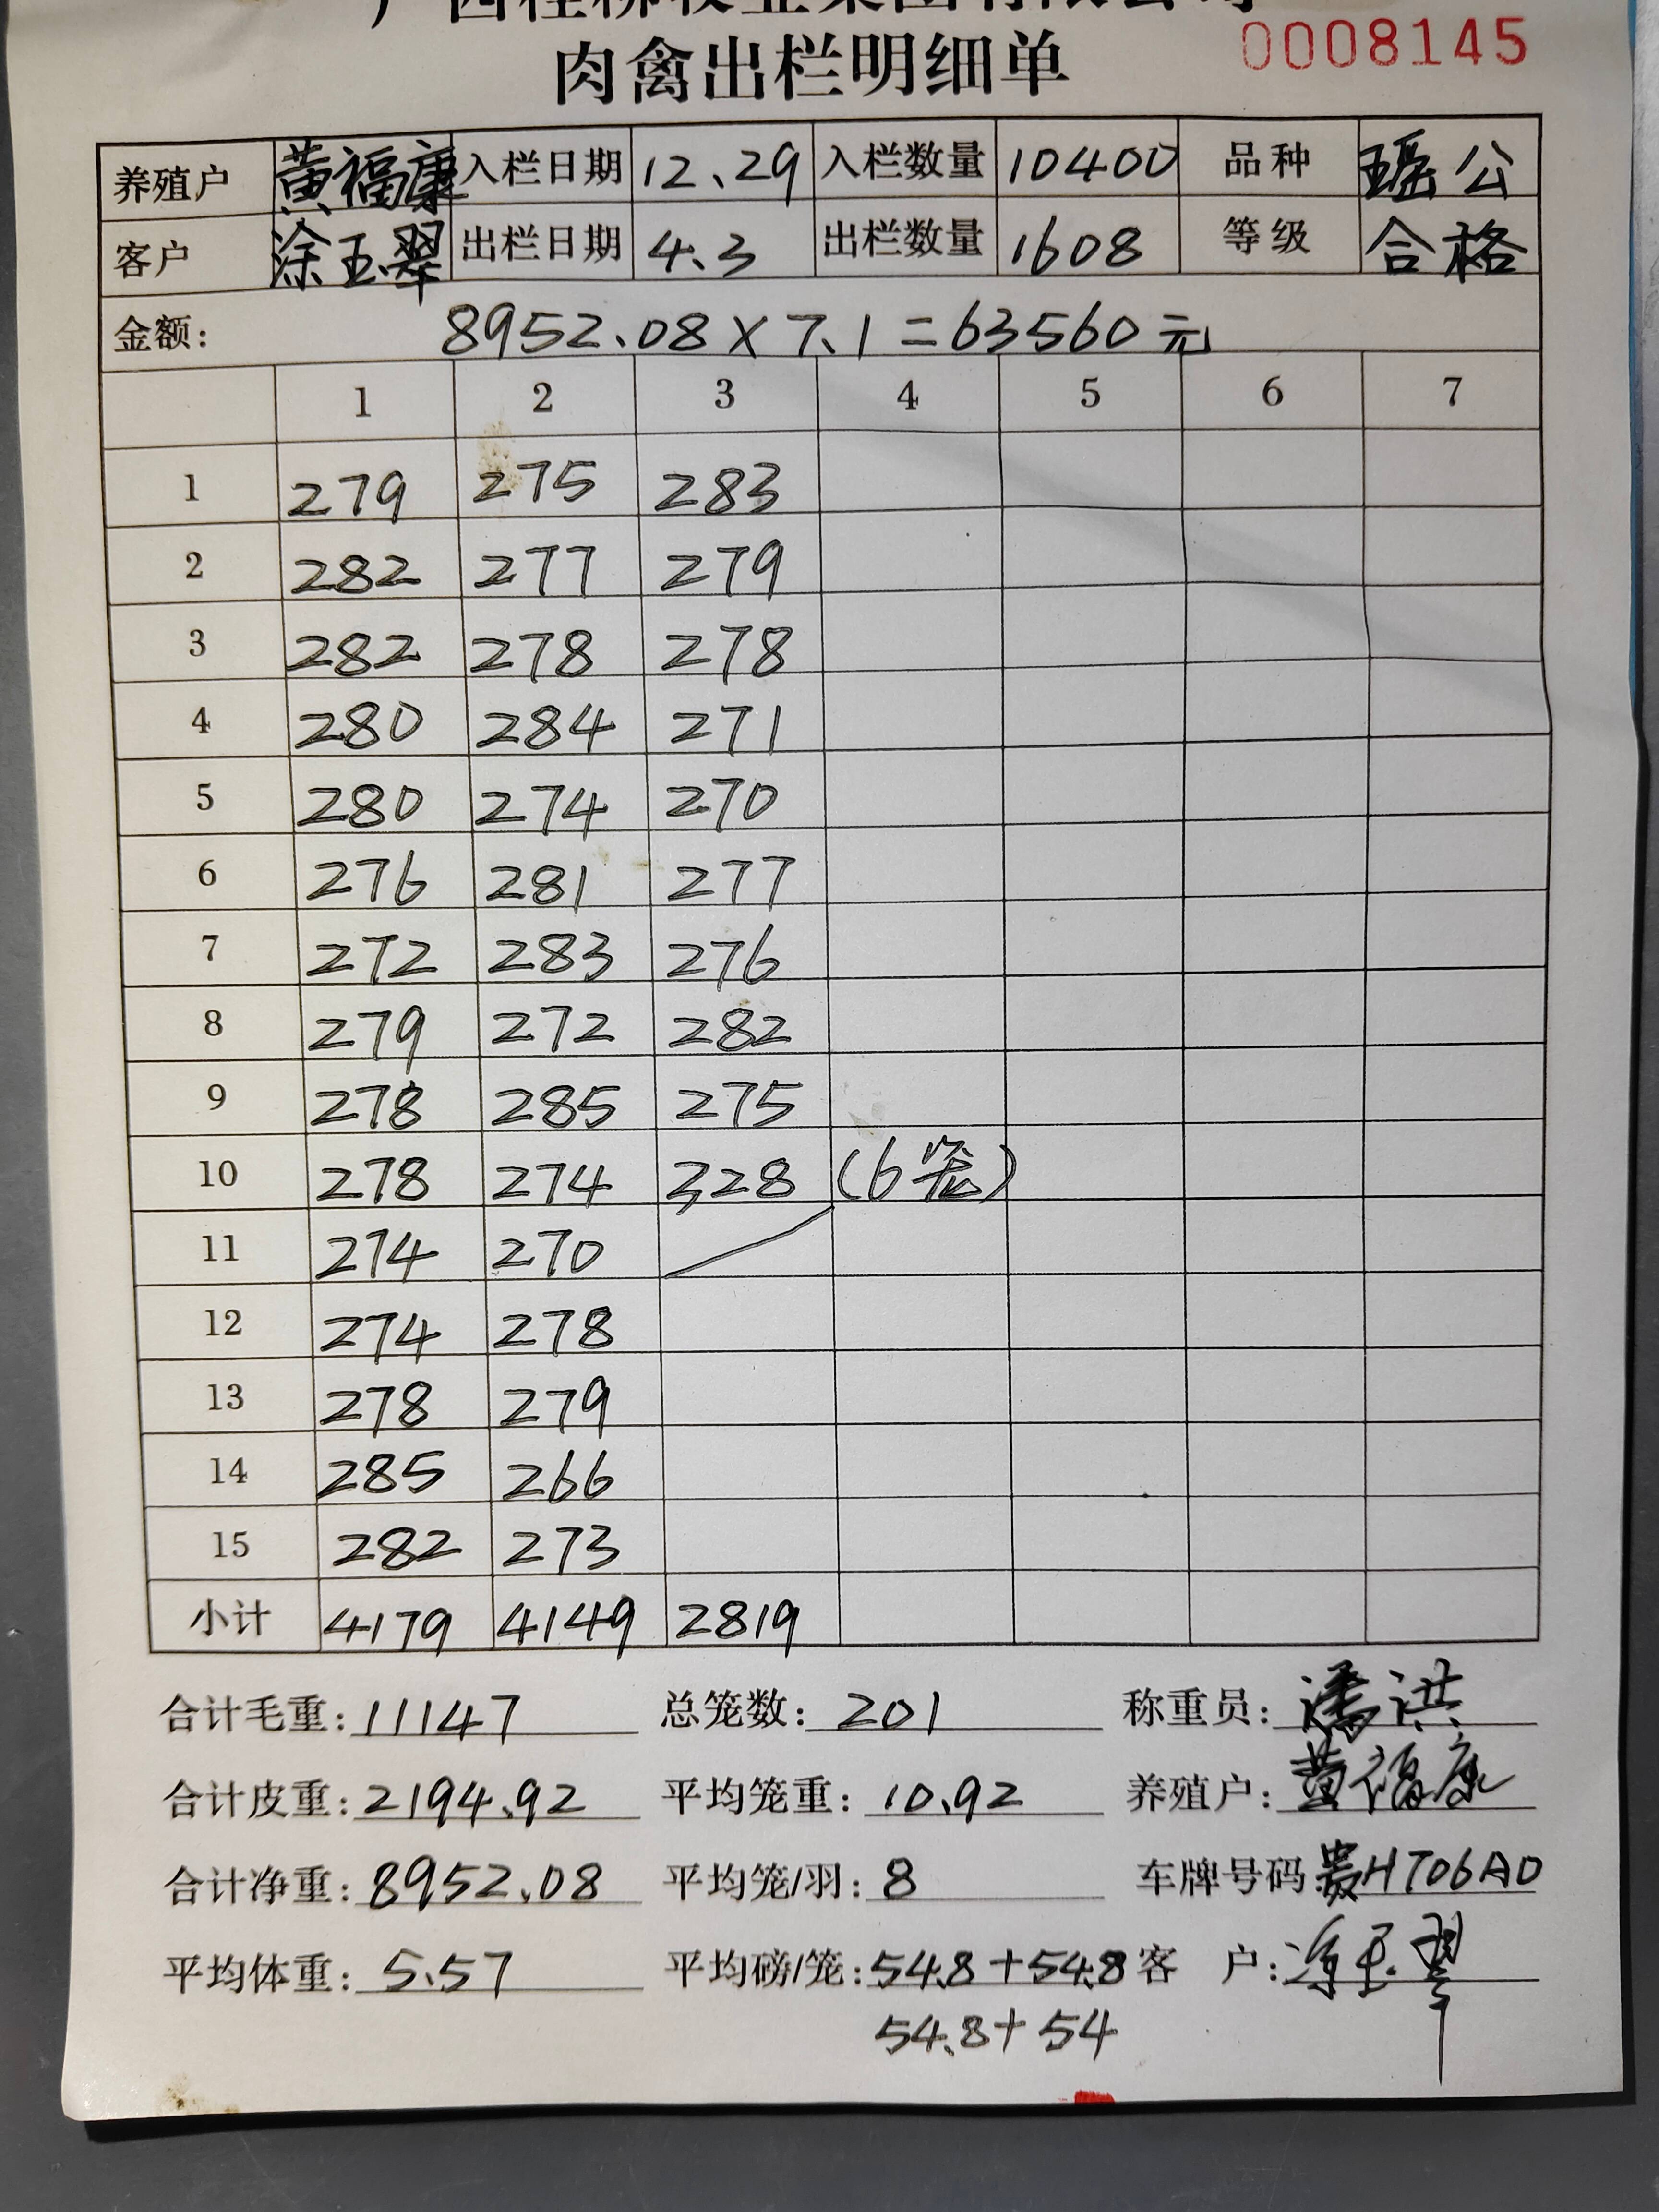 广西桂柳牧业集团有限公司
肉禽出栏明细单 0008145
养殖户 黄福康 入栏日期 12.29 入栏数量 10400 品种 瑶公
客户 涂玉翠 出栏日期 4.3 出栏数量 1608 等级 合格
金额: 8952.08×7.1=63560元
1 2 3 4 5 6 7
1 279 275 283
2 282 277 279
3 282 278 278
4 280 284 271
5 280 274 270
6 276 281 277
7 272 283 276
8 279 272 282
9 278 285 275
10 278 274 328 (6笼)
11 274 270
12 274 278
13 278 279
14 285 266
15 282 273
小计 4179 4149 2819
合计毛重: 11147 总笼数: 201 称重员: 潘洪
合计皮重: 2194.92 平均笼重: 10.92 养殖户: 黄福康
合计净重: 8952.08 平均笼/羽: 8 车牌号码: 贵HT06A0
平均体重: 5.57 平均磅/笼: 54.8+54.8 客 户: 涂玉翠
54.8+54